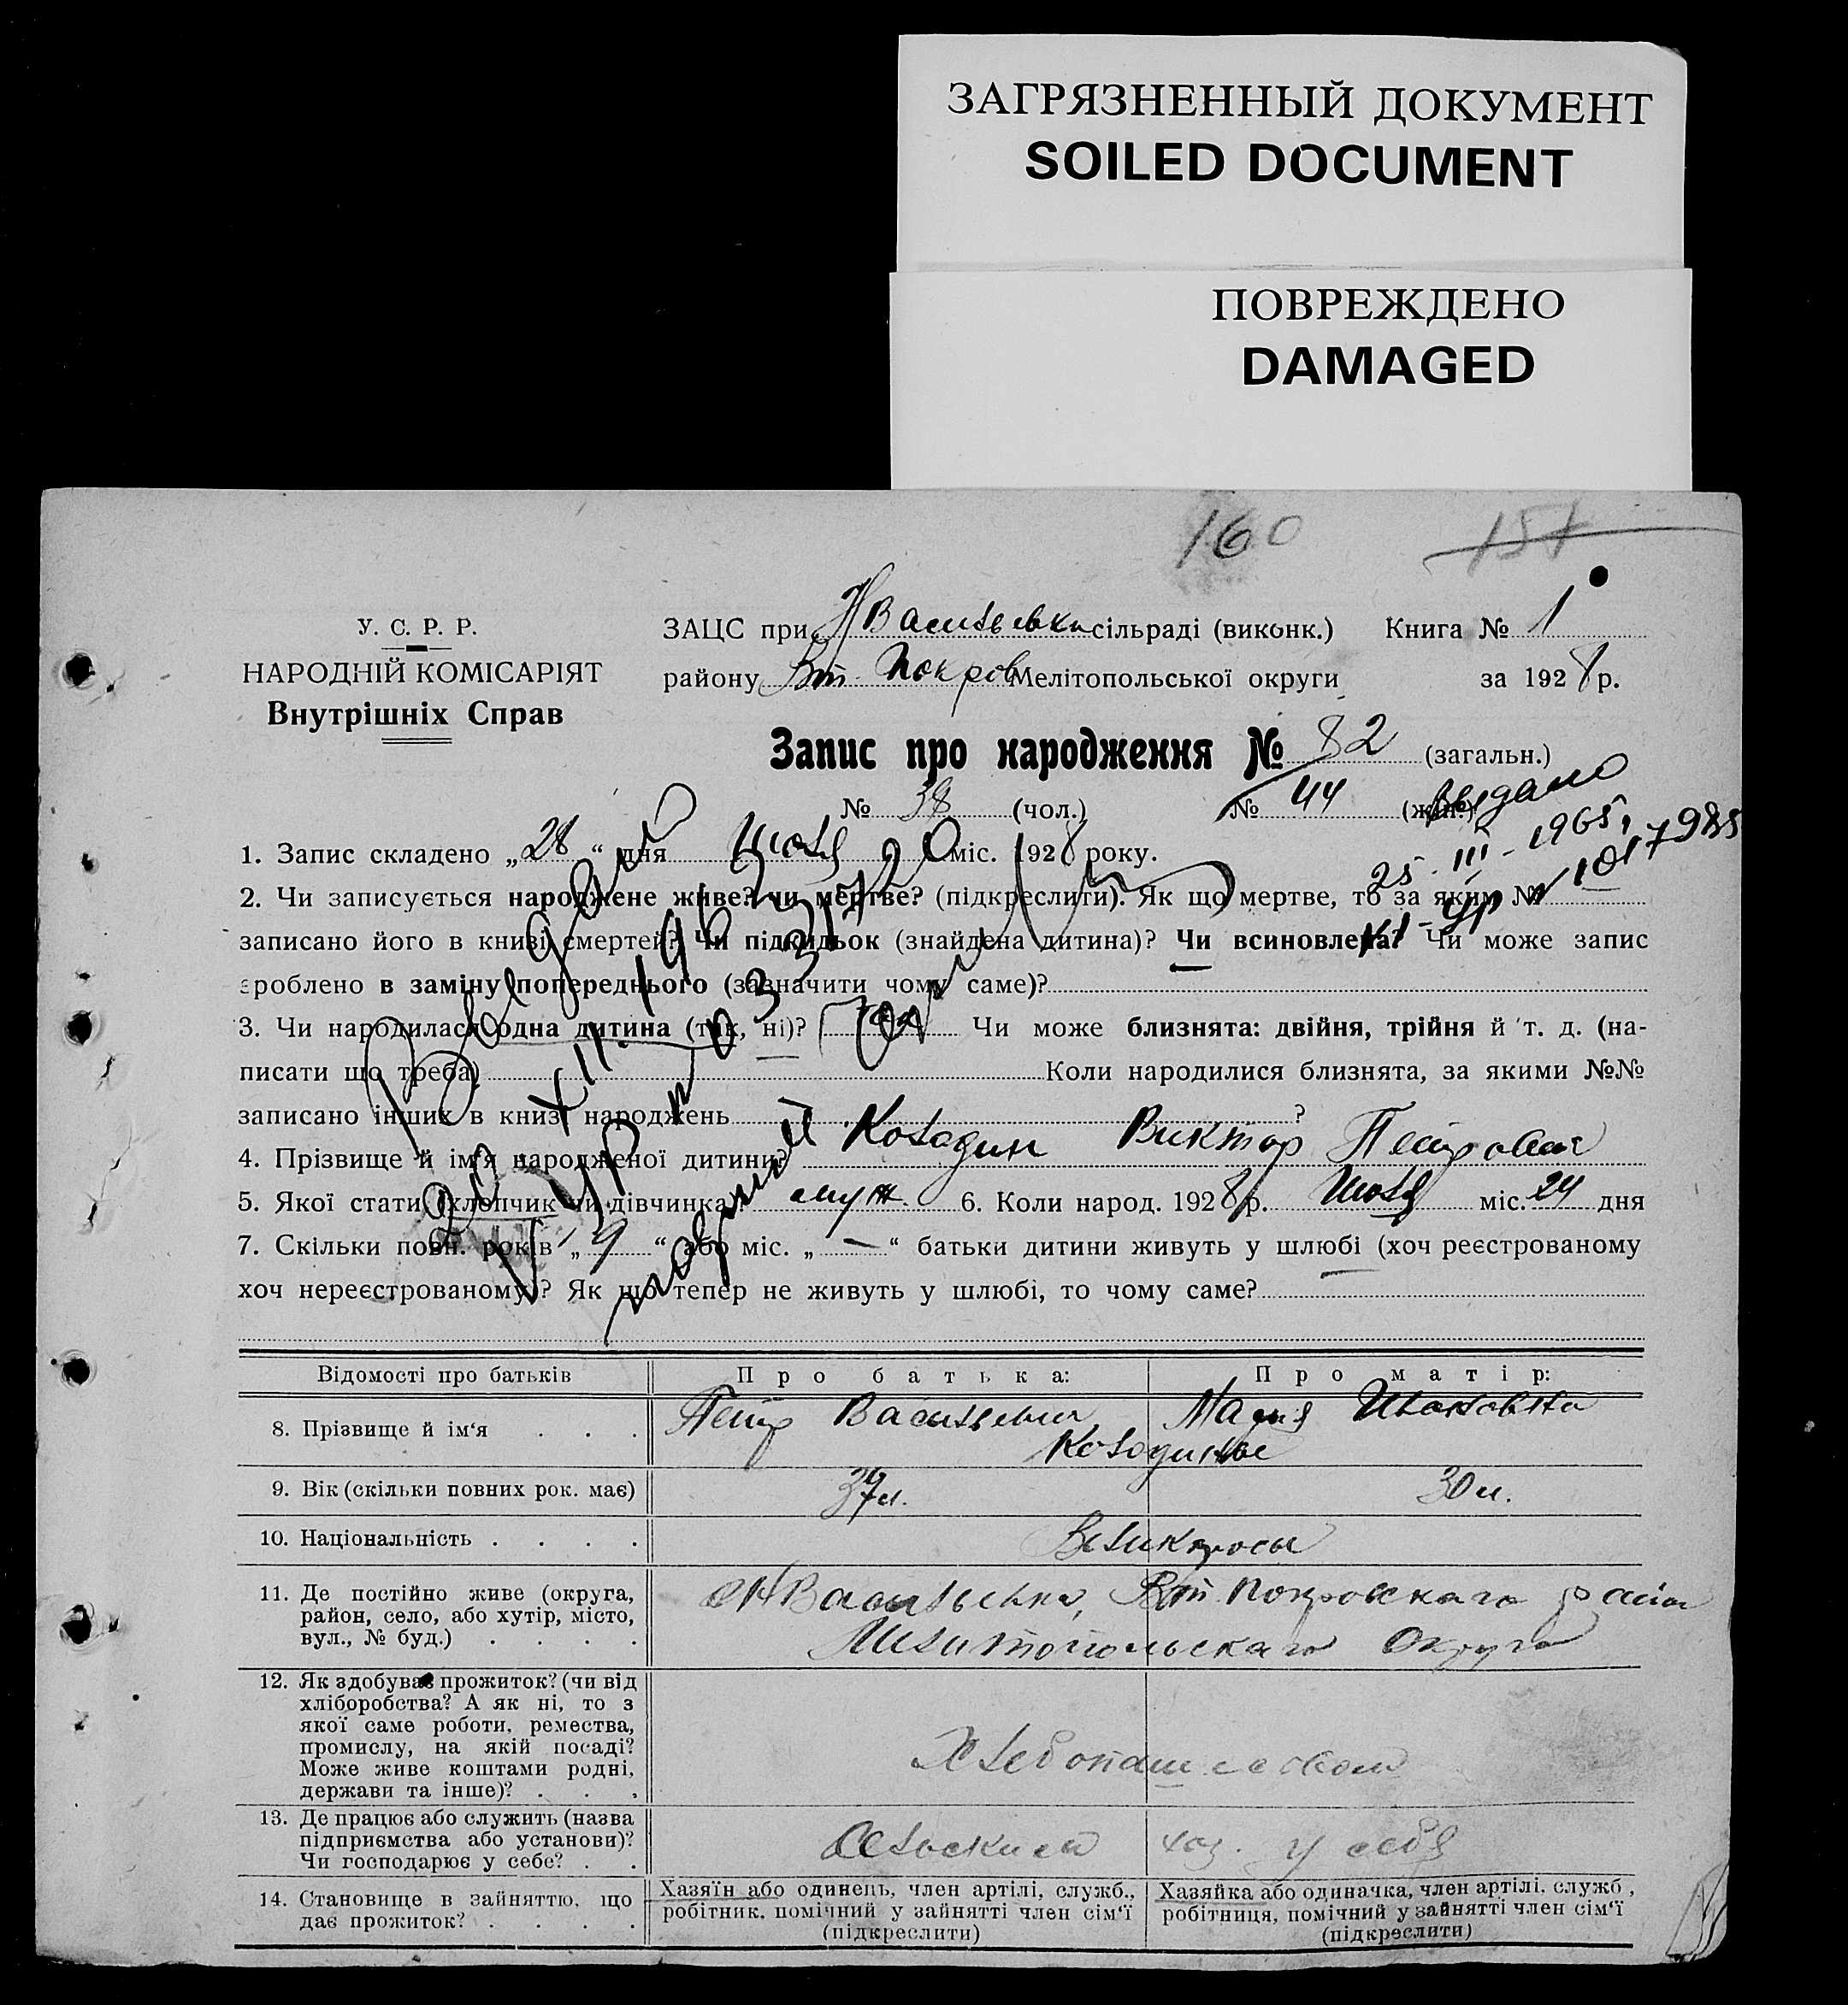 ЗАГРЯЗНЕННЫЙ ДОКУМЕНТ
SOILED DOCUMENT
ПОВРЕЖДЕНО
DAMAGED
160 151
У. С. Р. Р.
НАРОДНІЙ КОМІСАРІЯТ
Внутрішніх Справ
ЗАЦС при Н Васильевки сільраді (виконк.) Книга № 1
району Вт. Покров Мелітопольської округи за 1928 р.
Запис про народження № 82 (загальн.)
№ 38 (чол.) № 44 (жін.)
выдано
25 - III - 1965,
1. Запис складено „28“ дня Июля міс. 1928 року.
2. Чи записується народжене живе? чи мертве? (підкреслити). Як що мертве, то за яким №
записано його в книзі смертей? Чи підкидьок (знайдена дитина)? Чи всиновлена? Чи може запис
зроблено в заміну попереднього (зазначити чому саме)?
3. Чи народилася одна дитина (так, ні)? Чи може близнята: двійня, трійня й т. д. (на-
писати що треба) Коли народилися близнята, за якими №№
записано інших в книзі народжень ?
4. Прізвище й ім'я народженої дитини? Колодин Виктор Петрович
5. Якої стати (хлопчик чи дівчинка)? муж. 6. Коли народ. 1928 р. Июля міс. 24 дня
7. Скільки повн. років „9“ або міс. „—“ батьки дитини живуть у шлюбі (хоч реєстрованому
хоч нереєстрованому)? Як що тепер не живуть у шлюбі, то чому саме?
Выдан
повторный
Відомості про батьків Про батька: Про матір:
8. Прізвище й ім‘я . . . Петр Васильевич Мария Ивановна
Колодины
9. Вік (скільки повних рок. має) 30 л.
10. Національність . . . . Великросы
11. Де постійно живе (округа, район, село, або хутір, місто, вул., № буд.) . . . . с Н Васильевка, Вт. Покровскаго район
Мелитопольскаго Округа
12. Як здобуває прожиток? (чи від хліборобства? А як ні, то з якої саме роботи, ремества, промислу, на якій посаді? Може живе коштами родні, держави та інше)? . . . Хлебопашеством
13. Де працює або служить (назва підприємства або установи)? Чи господарює у себе? . . Сельским хоз. у себя
14. Становище в зайняттю, що дає прожиток? . . . . Хазяїн або одинець, член артілі, служб., робітник, помічний у зайнятті член сім‘ї (підкреслити) Хазяйка або одиначка, член артілі, служб., робітниця, помічний у зайнятті член сім‘ї (підкреслити)